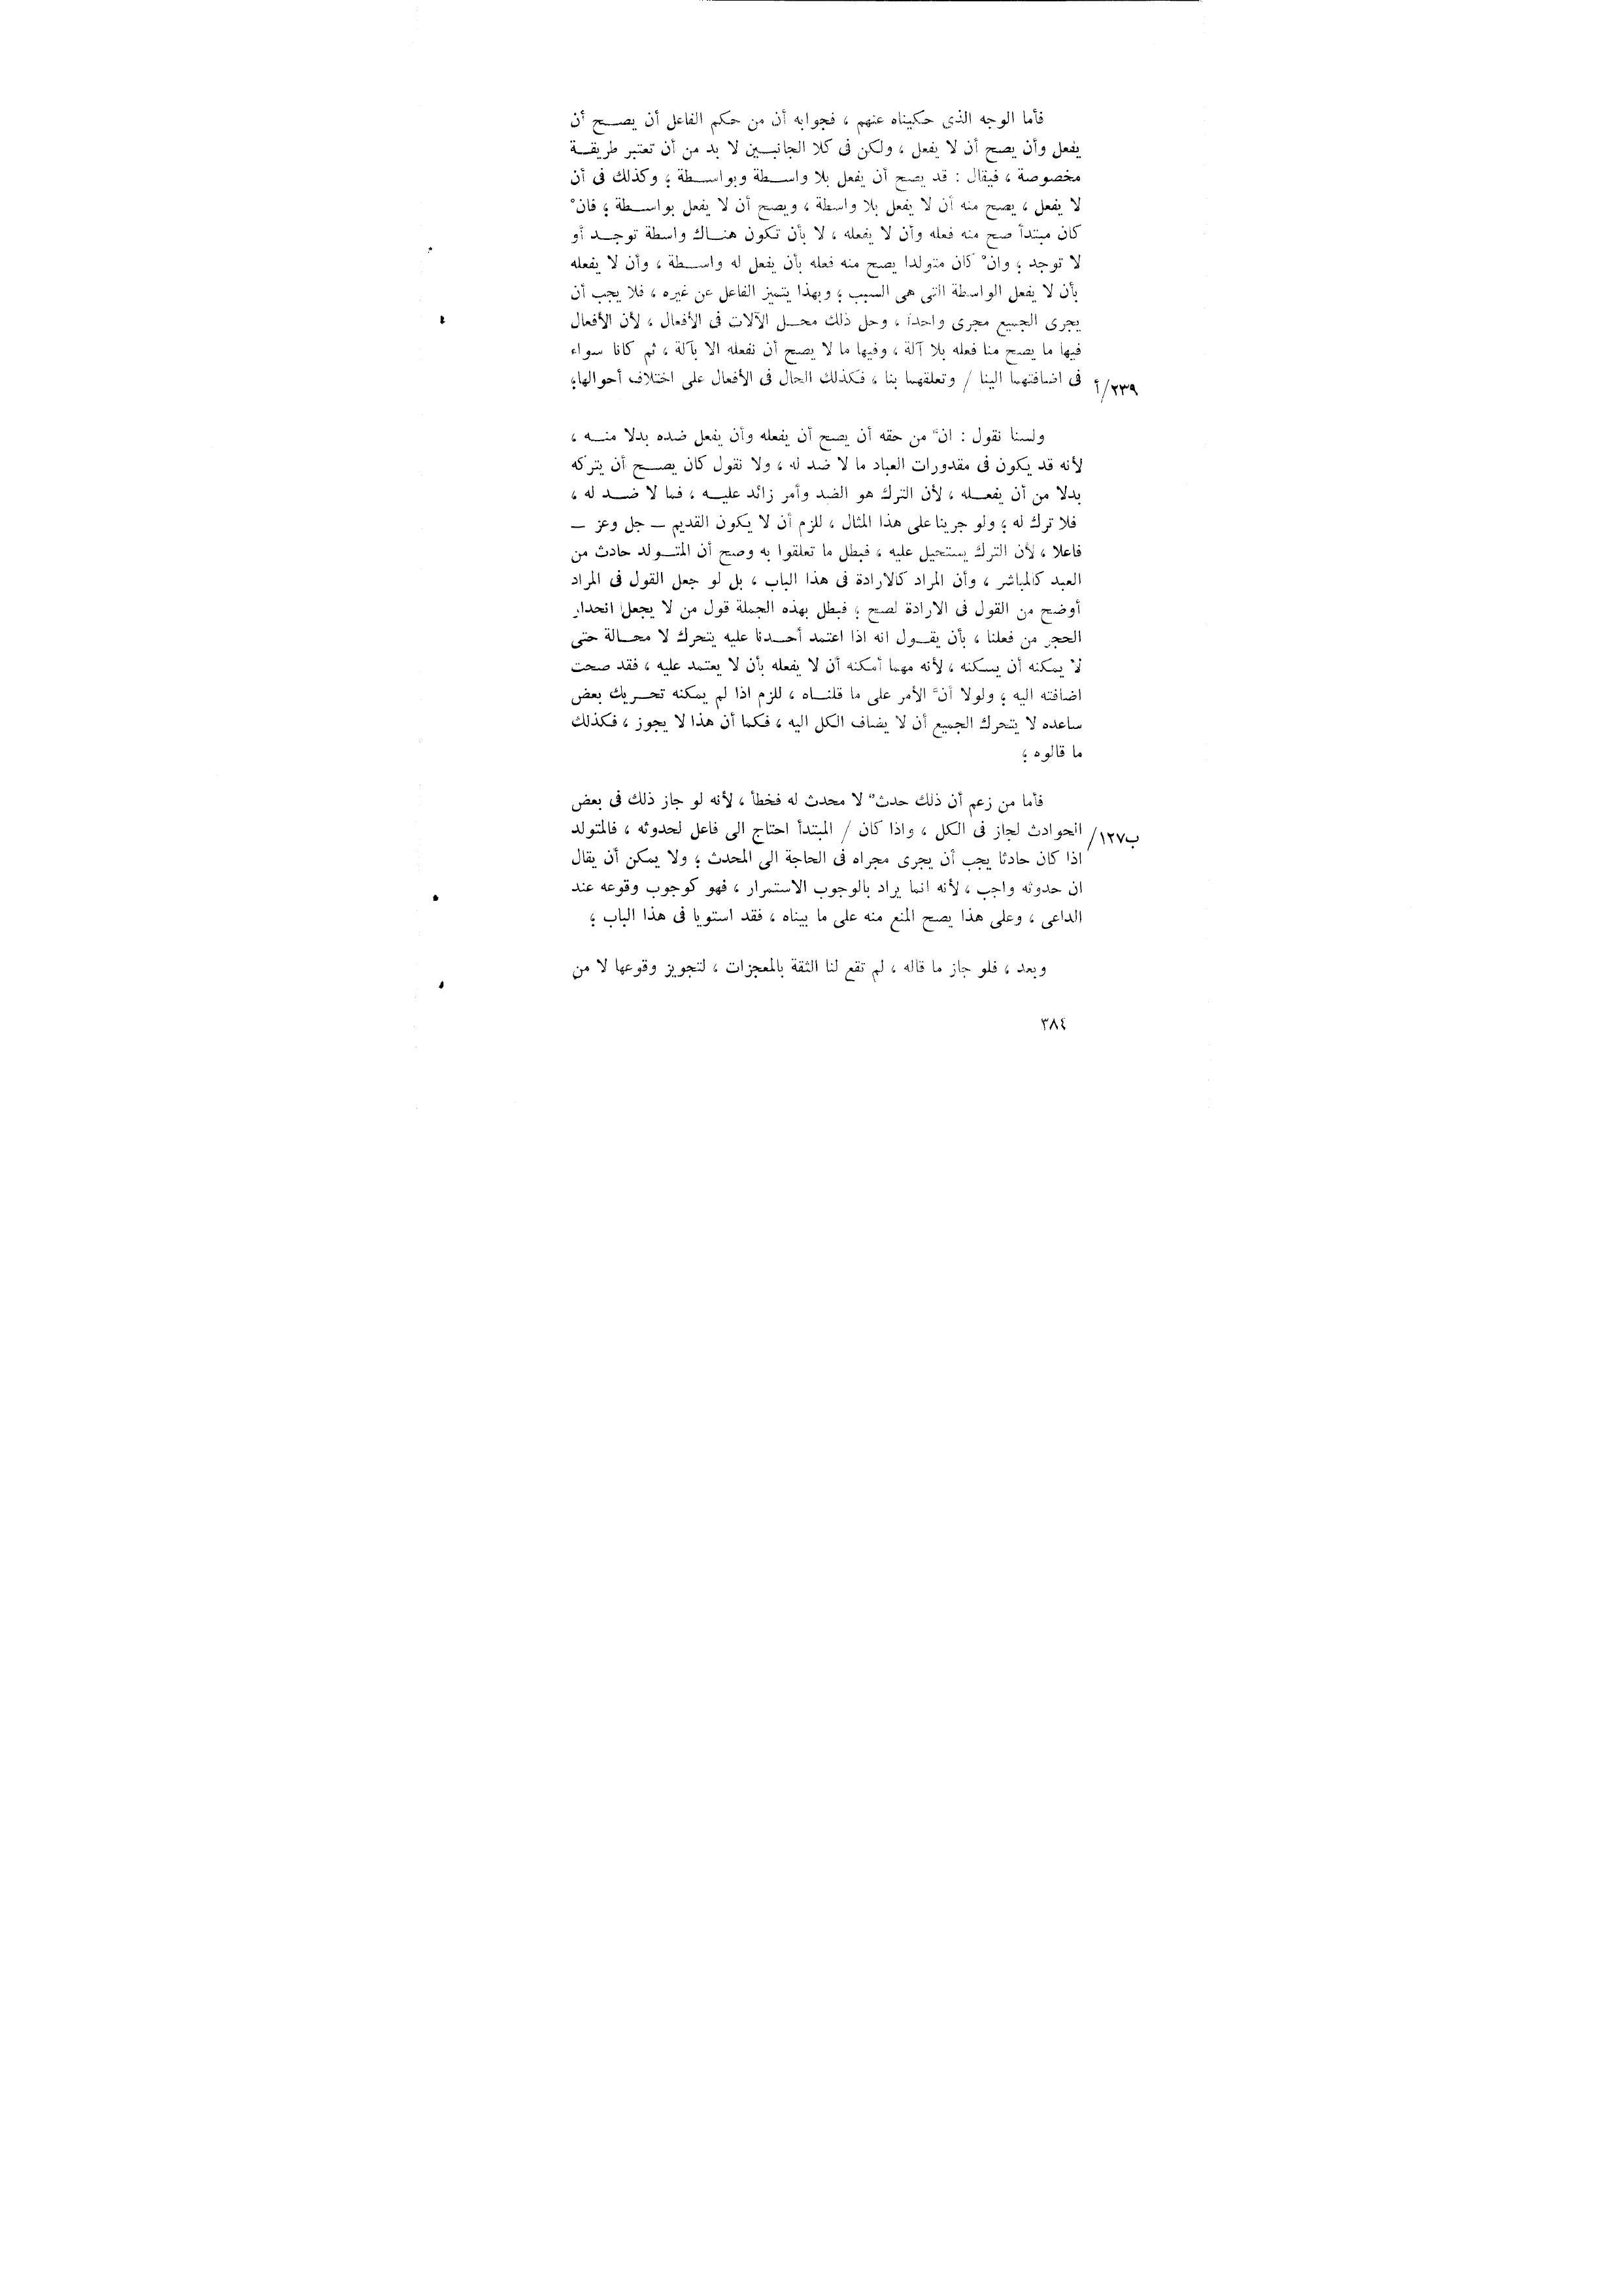 فأما الوجه الذى حكيناه عنهم ، فجوابه أن من حكم الفاعل أن يصح أن
يفعل وأن يصح أن لا يفعل ، ولكن فى كلا الجانبين لا بد من أن تعتبر طريقة
مخصوصة ، فيقال : قد يصح أن يفعل بلا واسطة وبواسطة ؛ وكذلك فى أن
لا يفعل ، يصح منه أن لا يفعل بلا واسطة ، ويصح أن لا يفعل بواسطة ؛ فانْ
كان مبتدأ صح منه فعله وأن لا يفعله ، لا بأن تكون هناك واسطة توجد أو
لا توجد ؛ وانْ كان متولدا يصح منه فعله بأن يفعل له واسطة ، وأن لا يفعله
بأن لا يفعل الواسطة التى هى السبب ؛ وبهذا يتميز الفاعل عن غيره ، فلا يجب أن
يجرى الجميع مجرى واحدا ، وحل ذلك محل الآلات فى الأفعال ، لأن الأفعال
فيها ما يصح منا فعله بلا آلة ، وفيها ما لا يصح أن نفعله الا بآلة ، ثم كانا سواء
فى اضافتهما الينا / وتعلقهما بنا ، فكذلك الحال فى الأفعال على اختلاف أحوالها؛
٢٣٩/أ
ولسنا نقول : انَّ من حقه أن يصح أن يفعله وأن يفعل ضده بدلا منه ،
لأنه قد يكون فى مقدورات العباد ما لا ضد له ، ولا نقول كان يصح أن يتركه
بدلا من أن يفعله ، لأن الترك هو الضد وأمر زائد عليه ، فما لا ضد له ،
فلا ترك له ؛ ولو جرينا على هذا المثال ، للزم أن لا يكون القديم — جل وعز —
فاعلا ، لأن الترك يستحيل عليه ، فبطل ما تعلقوا به وصح أن المتولد حادث من
العبد كالمباشر ، وأن المراد كالارادة فى هذا الباب ، بل لو جعل القول فى المراد
أوضح من القول فى الارادة لصح ؛ فبطل بهذه الجملة قول من لا يجعل انحدار
الحجر من فعلنا ، بأن يقول انه اذا اعتمد أحدنا عليه يتحرك لا محالة حتى
لا يمكنه أن يسكنه ، لأنه مهما أمكنه أن لا يفعله بأن لا يعتمد عليه ، فقد صحت
اضافته اليه ؛ ولولا أنَّ الأمر على ما قلناه ، للزم اذا لم يمكنه تحريك بعض
ساعده لا يتحرك الجميع أن لا يضاف الكل اليه ، فكما أن هذا لا يجوز ، فكذلك
ما قالوه ؛
فأما من زعم أن ذلك حدثٌ لا محدث له فخطأ ، لأنه لو جاز ذلك فى بعض
الحوادث لجاز فى الكل ، واذا كان / المبتدأ احتاج الى فاعل لحدوثه ، فالمتولد
١٢٧ب/
اذا كان حادثا يجب أن يجرى مجراه فى الحاجة الى المحدث ؛ ولا يمكن أن يقال
ان حدوثه واجب ، لأنه انما يراد بالوجوب الاستمرار ، فهو كوجوب وقوعه عند
الداعى ، وعلى هذا يصح المنع منه على ما بيناه ، فقد استويا فى هذا الباب ؛
وبعد ، فلو جاز ما قاله ، لم تقع لنا الثقة بالمعجزات ، لتجويز وقوعها لا من
٣٨٤